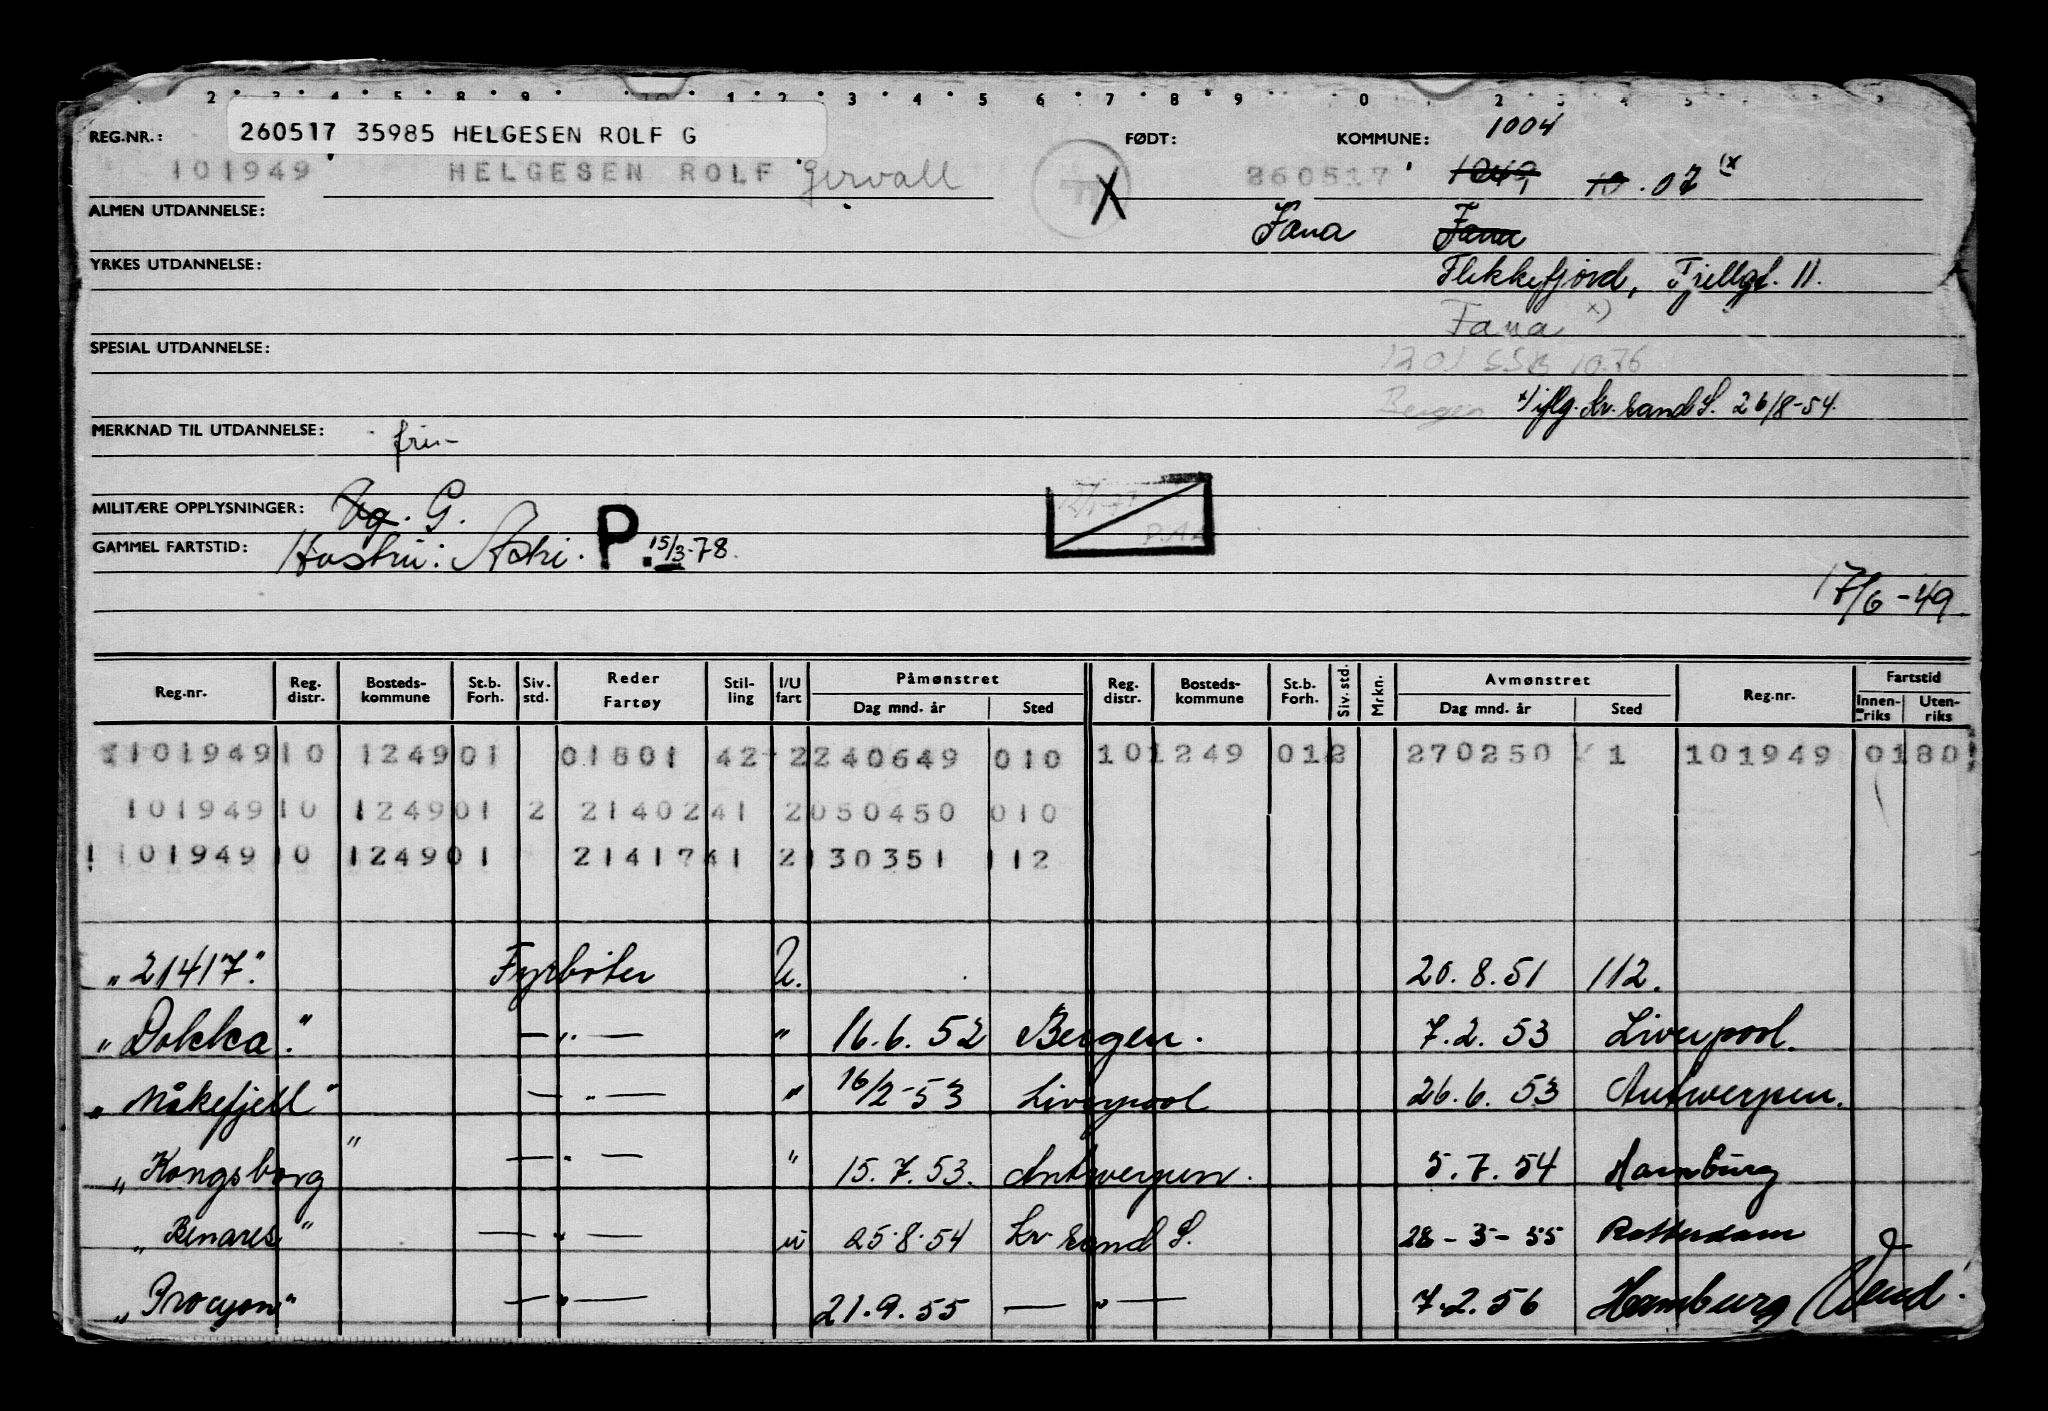 2 3 4 5 8 9 10 1 2 3 4 5 6 7 8 9 0 2 3 4 5
REG.NR.: 260517 35985 HELGESEN ROLF G FØDT: KOMMUNE: 1004
101949 HELGESEN ROLF Gervall X 260517 1249 10.07 x)
ALMEN UTDANNELSE: Fana Fana
YRKES UTDANNELSE: Flekkefjord, Fjellgt. 11.
Fana x)
SPESIAL UTDANNELSE: 1201 SSB 10.76
Bergen x) iflg. Kr.sand S. 26/8-54.
MERKNAD TIL UTDANNELSE:
MILITÆRE OPPLYSNINGER: Ug. G.
GAMMEL FARTSTID: Hustru: P. 15/3-78.
17/6-49.
Reg.nr. Reg. distr. Bosteds-kommune St.b. Forh. Siv. std. Reder Fartøy Stil-ling I/U fart Påmønstret Dag mnd. år Sted Reg. distr. Bosteds-kommune St.b. Forh. Siv. std. Mrkn. Avmønstret Dag mnd. år Sted Reg.nr. Fartstid Innen-riks Uten-riks
101949 10 1249 01 01801 42 2 240649 010 10 1249 01 2 270250 1 101949 01801
101949 10 1249 01 2 21402 41 2 050450 010
101949 10 1249 01 21417 41 2 130351 112
"21417". Fyrbøter U. 20.8.51 112.
"Dokka". — " — " 16.6.52 Bergen. 7.2.53 Liverpool.
"Måkefjell" — " — " 16/2-53 Liverpool 26.6.53 Antwerpen.
"Kongsborg" — " — " 15.7.53. Antwerpen. 5.7.54 Hamburg
"Benares" — " — u 25.8.54 Kr.sand S. 28-3-55 Rotterdam
"Procyon" — " — 21.9.55 — " — 7.2.56 Hamburg (Vend!